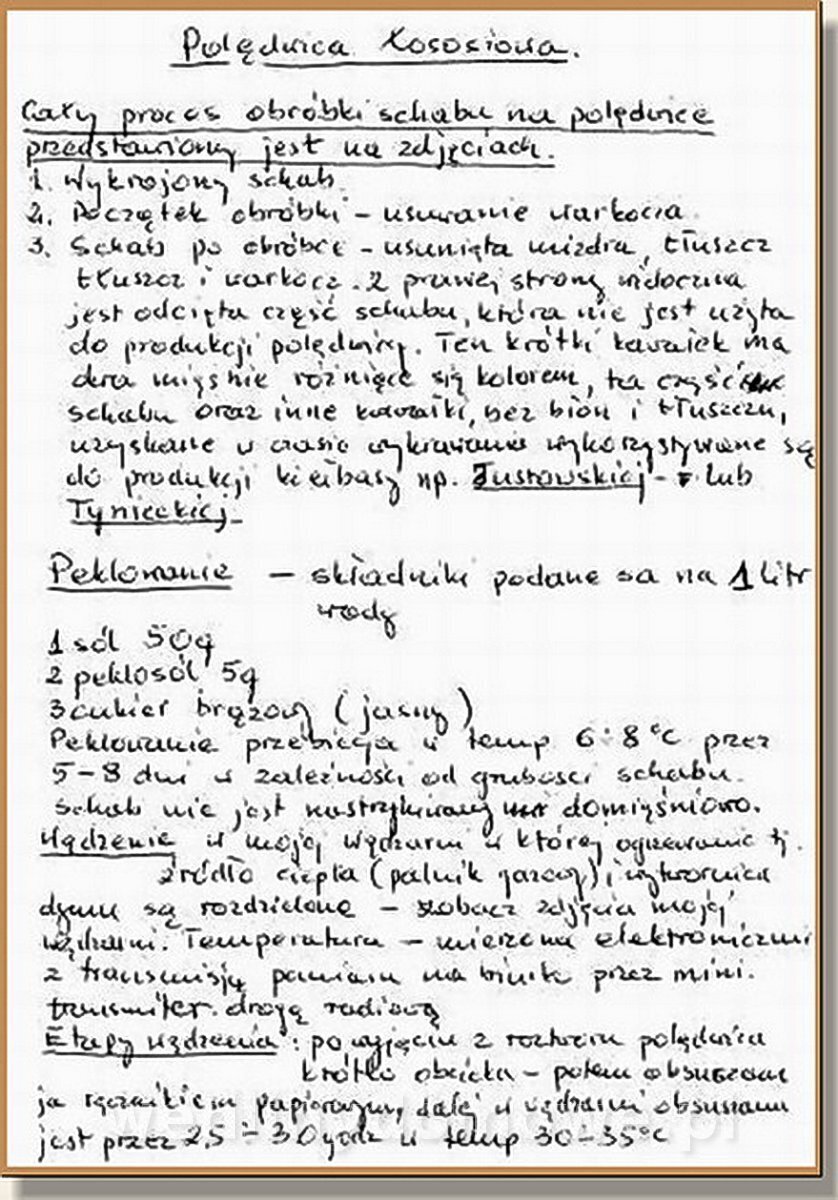 Polędwica Łososiowa.
Cały proces obróbki schabu na polędwice
przedstawiony jest na zdjęciach.
1. Wykrojony schab.
2. Początek obróbki – usuwanie warkocza.
3. Schab po obróbce – usunięta mizdra, tłuszcz
tłuszcz i warkocz. Z prawej strony widoczna
jest odcięta część schabu, która nie jest użyta
do produkcji polędwicy. Ten krótki kawałek ma
dwa mięśnie różniące się kolorem, ta część
schabu oraz inne kawałki, bez błon i tłuszczu,
uzyskane w czasie wykrawania wykorzystywane są
do produkcji kiełbasy np. Justowskiej – lub
Tynieckiej.
Peklowanie – składniki podane sa na 1 litr
wody
1 sól 50g
2 peklosól 5g
3 cukier brązowy (jasny)
Peklowanie przebiega w temp 6÷8°C przez
5–8 dni w zależności od grubości schabu.
Schab nie jest nastrzykiwany domięśniowo.
Wędzenie w mojej wędzarni w której ogrzewanie tj.
źródło ciepła (palnik gazowy) i wytwornica
dymu są rozdzielone – zobacz zdjęcia mojej
wędzarni. Temperatura – mierzona elektronicznie
z transmisją pomiaru na biurko przez mini.
transmiter. drogą radiową
Etapy wędzenia: po wyjęciu z roztworu polędwica
krótko obcieka – potem obsuszane
ja ręcznikiem papierowym, dalej w wędzarni obsuszana
jest przez 2,5 ÷ 3,0 godz w temp 30÷35°C
wedlinydomowe.pl